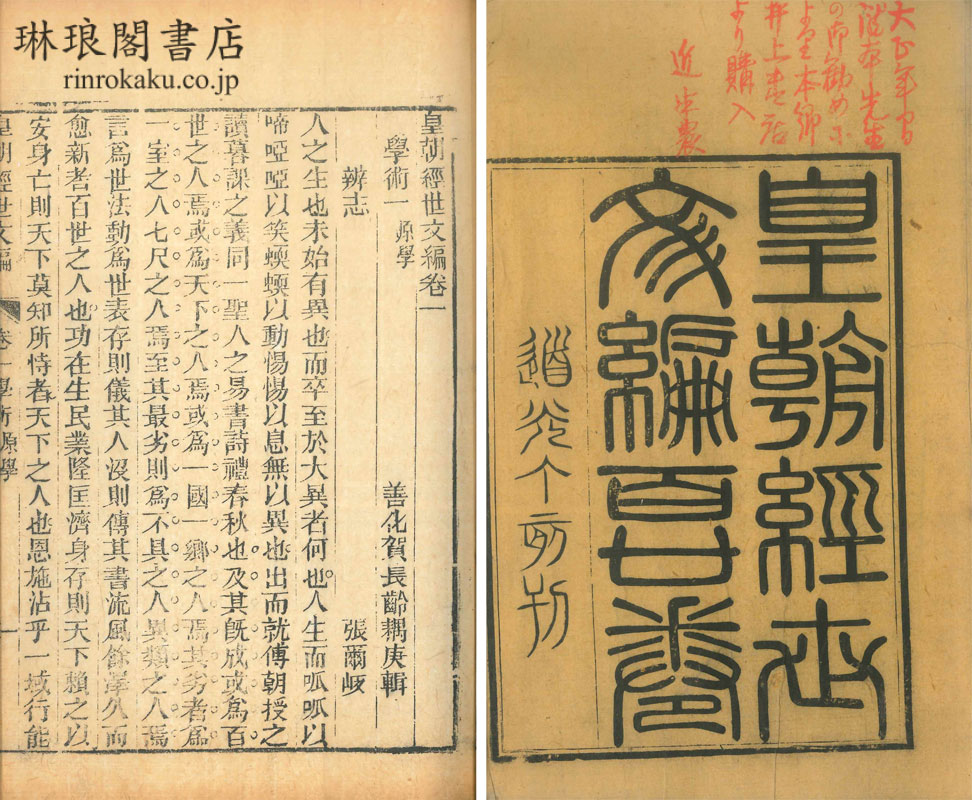 琳琅閣書店
rinrokaku.co.jp
瀧本先生
の御勧めに
より本郷
井上書店
より購入
皇朝經世
文編百廿卷
道光丁亥刊
皇朝經世文編卷一
學術一 原學 善化賀長齡耦庚輯
辨志 張爾岐
人之生也未始有異也而卒至於大異者何也人生而呱呱以
啼啞啞以笑蝡蝡以動惕惕以息無以異也出而就傅朝授之
讀暮課之義同一聖人之易書詩禮春秋也及其旣成或爲百
世之人焉或爲天下之人焉或爲一國一鄉之人焉其劣者爲
一室之人七尺之人焉至其最劣則爲不具之人異類之人焉
言爲世法動爲世表存則儀其人沒則傳其書流風餘澤久而
愈新者百世之人也功在生民業隆匡濟身存則天下賴之以
安身亡則天下莫知所恃者天下之人也恩施沾乎一域行能
皇朝經世文編 卷一學術原學 一